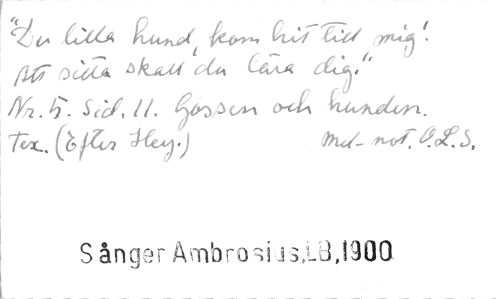 "Du lilla hund, kom hit till mig!
Att sitta skall du lära dig."
Nr. 5. Sid. 11. Gossen och hunden.
Tex. (Efter Hey.) Mel- not. O.L.S.
Sånger Ambrosius,LB,1900